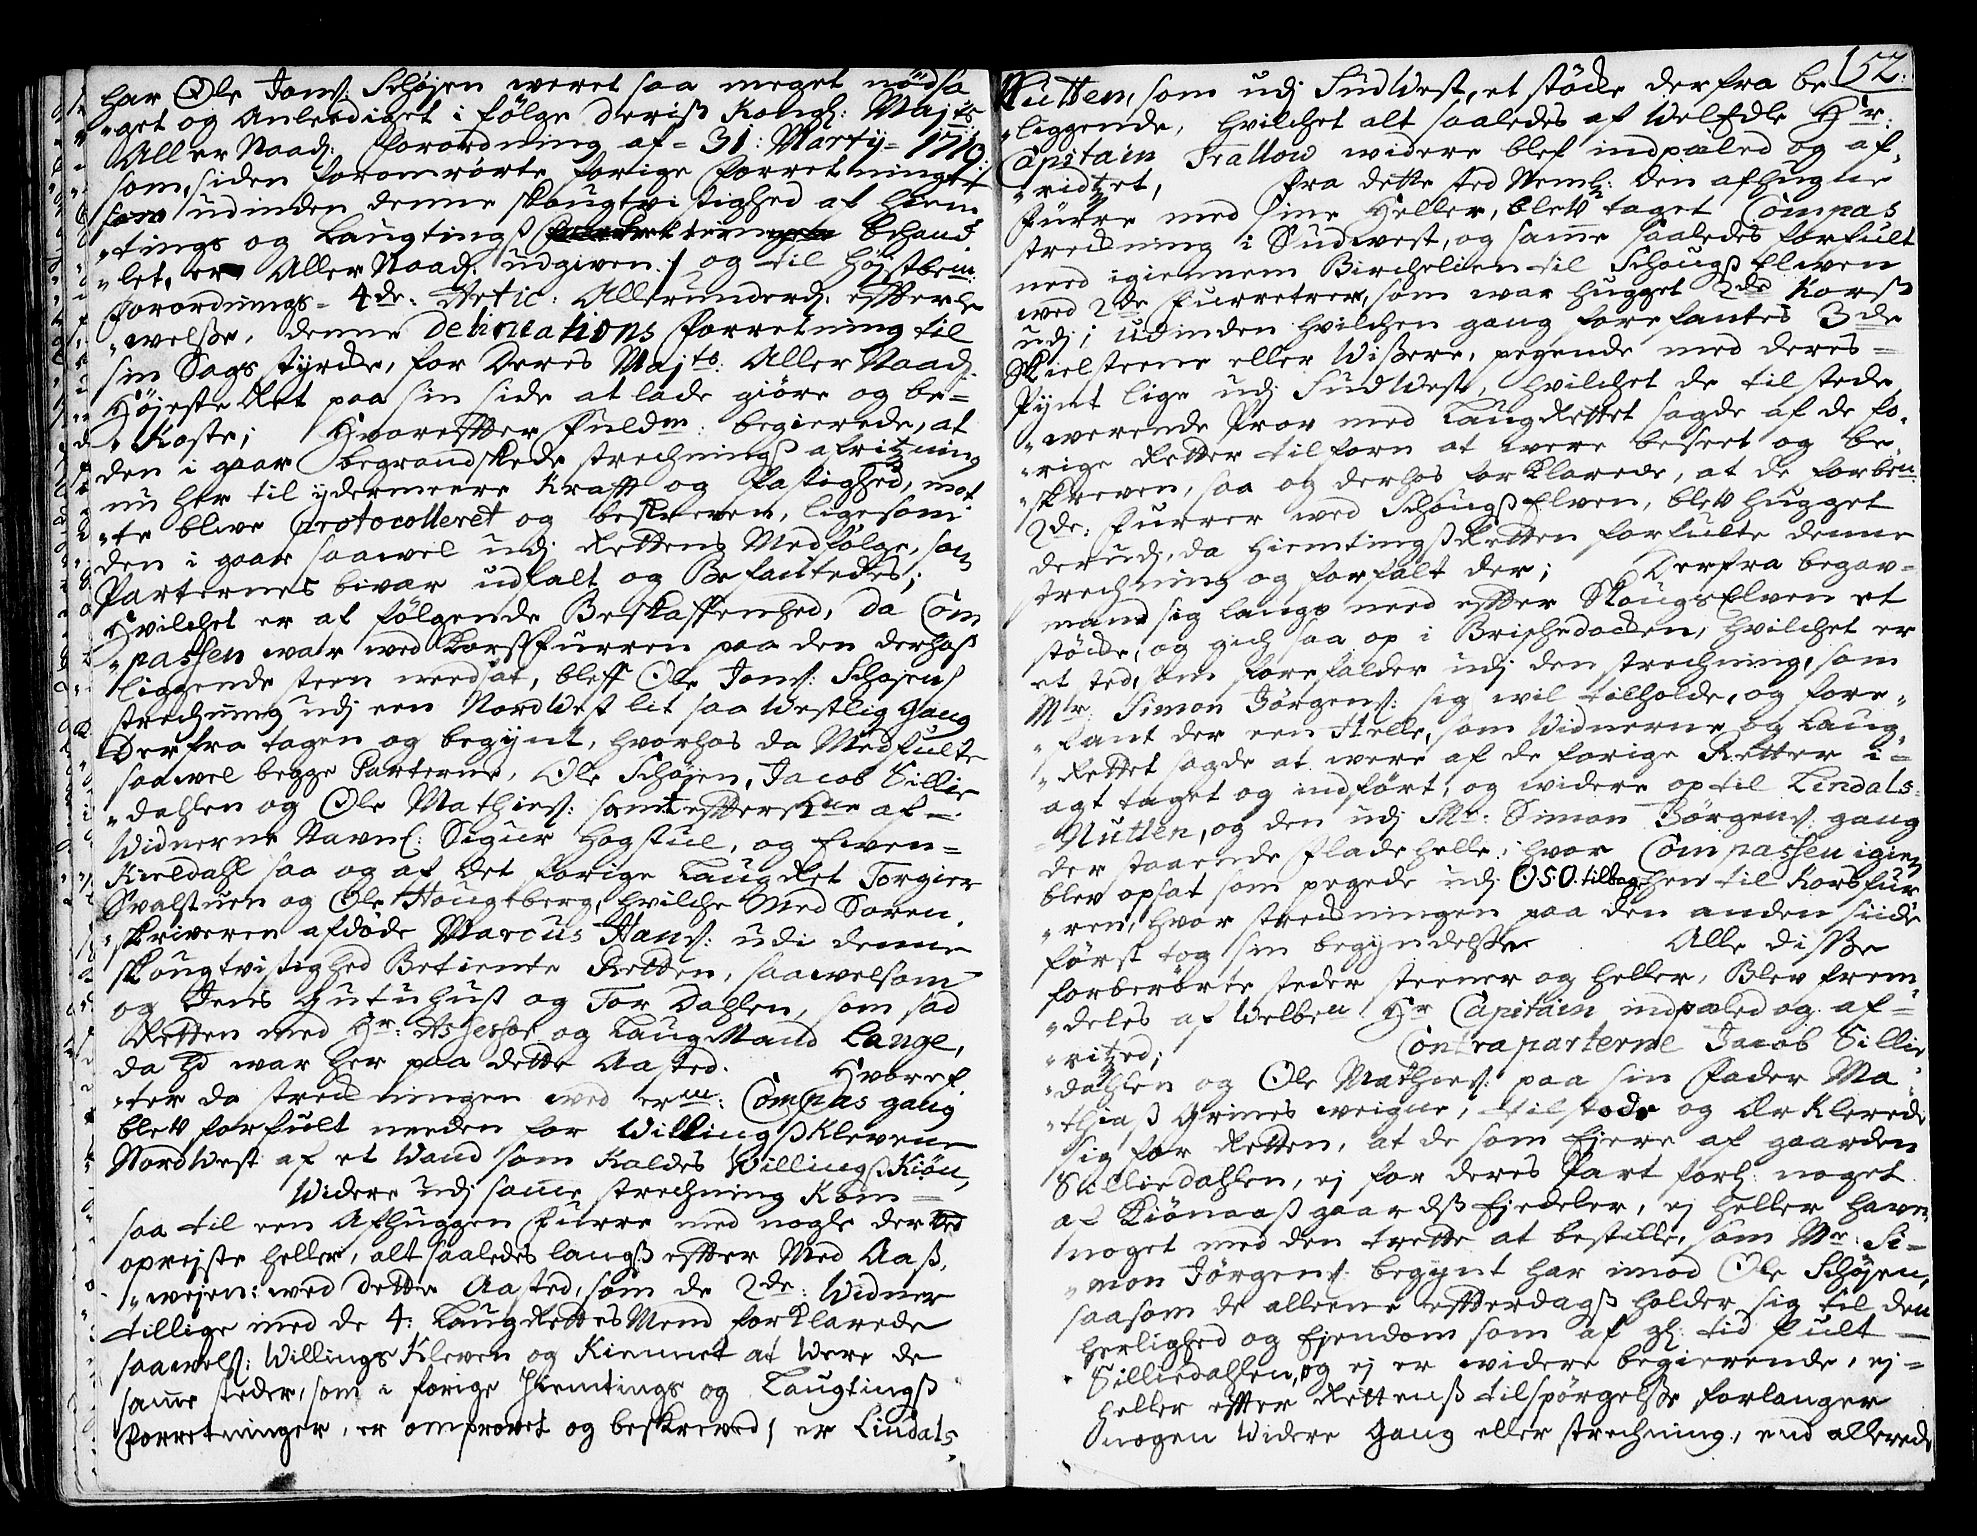 har Ole Joms: Schøjen weret saa meget nødsa
"get og Anleediget i følge deriß Kongl: Majts:
Aller Naad: forordning af = 31: Marty = 1719:
som, siden foromrørte forige forretninger
udinden denne skougtvistighed af hiem
"tings og Laugtingß behand
"let, er Aller Naad: udgiven / og til højstbem:
forordnings = 4de: Artic: Allerunderd: effterle
"welsse, denne delineations forretning til
sin Sags styrcke, for Deres Majts: Aller Naad:
Højeste Ret paa sin side at lade giøre og be=
"Koste; Hvoreffter fuldm: begierede, at
den i gaar begrandskede strechningß afritzning
nu her til ydermeere Krafft og fastighed, mot
"te blive Protocolleret og beskreven, ligesom
den i gaar saawel udj Rettens Medfølge, som
Parternes bivær udfalt og Befantedes;
Hvilchet er af følgende Beskaffenhed, da Com
"passen war wed Korßfurren paa den derhoß
liggende steen needsat, bleff Ole Joms: Schøjens
strechning udj een NordWest lit saa Westlig gang
derfra tagen og begynt, hvorhos da Medfulte
saawel begge Parterne, Ole Schøjen, Jacob Sillie
"dahlen og Ole Mathies: samt effterskne af=
Widnerne Navnl: Sigur Hogstul, og Even=
Kieldahl saa og af det forige LaugRet Torgier
Svalstuen og Ole Hougeberg, hvilche Med Soren
"skriveren afdøde Marcus Hans: udi denne
skougtvistighed Betiente Retten, saawelsom
og Jens Gutuhuß og Tor Dahlen, som sad
Retten med Hr: Assessor og LaugMand Lange,
da hd war her paa dette Aasted. Hvoref
"ter da strechningen wed erm: Compas gang
blev forfult needen for WillingßKlevene
NordWest af et Wand som Kaldes WillingßKiøn,
Widere udj same strechning Kom=
saa til een Afhuggen furre med nogle der
oprejste heller, alt saaledes langß effter Med Aaß,
"wejen: wed dette Aasted, som de 2de: Widner
tillige med de 4: LaugRettesMend forklarede
saawels: WillingsKleven og Kiennet at Were de
same steder, som i forige Hiemtings og Laugtingß
forretninger, er omprøvet og beskreved / er Lindals,
52:
Nutten, som udj SudWest, et støcke derfra be
"liggende, hvilchet alt saaledes af WelEdle Hr:
Capitain Trallow widere blef indpæled og af,
"ridtzet, fra dette sted Neml: den afhugne
furre med sine Heller, blev taget Compas
strechning i Sudwest, og same saaledes forfult
need igiennem Birchelien til Schougß Elwen
wed 2de furretrer, som war hugget 2de Korß
udj; udinden hvilchen gang forefantes 3de
Skielsteene eller Wißere, pegende med deres=
Pynt lige udj SudWest, hvilchet de til stede
"werende Prov med LaugRettet sagde af de fo,
"rige Retter tilforn at were beseet og be
"skreven, saa og derhos forKlarede, at de forbem
2de: furrer wed SchougßElven, blev hugget
derudj, da HiemtingßRetten forfulte denne
strechning og forfalt der; Derfra begav=
mand sig langs need effter SkougsElven et
støcke, og gich saa op i Brischedocken, hvilchet er
et sted, som forefalder udj den strechning, som
Mr: Simon Jørgens: sig wil tilholde, og fore,
"fant der een Helle, som Widnerne og Laug,
"Rettet sagde at were af de forige Retter i=
agt taget og indført, og widere op til Lindals=
Nutten, og den udj Mr: Simon Jørgens: gang
der staaende fladehelle: hvor Compassen igien
blev opsat som pegede udj OSO. tilbagehen til Korsfur
"ren, hvor strechningen paa den anden siide
først tog sin begyndelsse Alle disse
forberørte steder steener og heller, Blev frem,
"deles af Welbem Hr Capitain indpæled og af=
"ritzed; Contraparterne Jacob Sillie
"dahlen og Ole Mathies: paa sin fader Ma
"thiaß Grines weigne, til stede og ErKlerede
sig for Retten, at de som Ejere af gaarden
Silliedahlen, ej for deres Part forl: noget
af Kiønaaß gaardß Ejedeler, ej heller haver
noget med den trette at bestille, som Mr: Si=
"mon Jørgens: begynt har imod Ole Schøjen,
saasom de alleene effterdagß holder sig til den
herlighed og Ejendom som af gl: tid fult=
Silliedahlen, og ej er widere begierende, ej=
heller effter Rettenß tilspørgelsse forlanger
nogen Widere gang eller strechning, end allerede